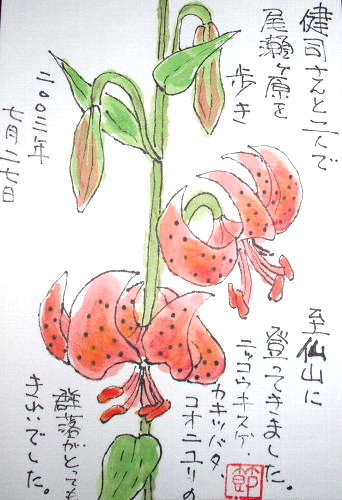 健司さんと二人で
尾瀬ヶ原を
歩き
至仙山に
登ってきました。
ニッコウキスゲ、
カキツバタ、
コオニユリの
群落がとっても
きれいでした。
二〇〇三年
七月二七日
節